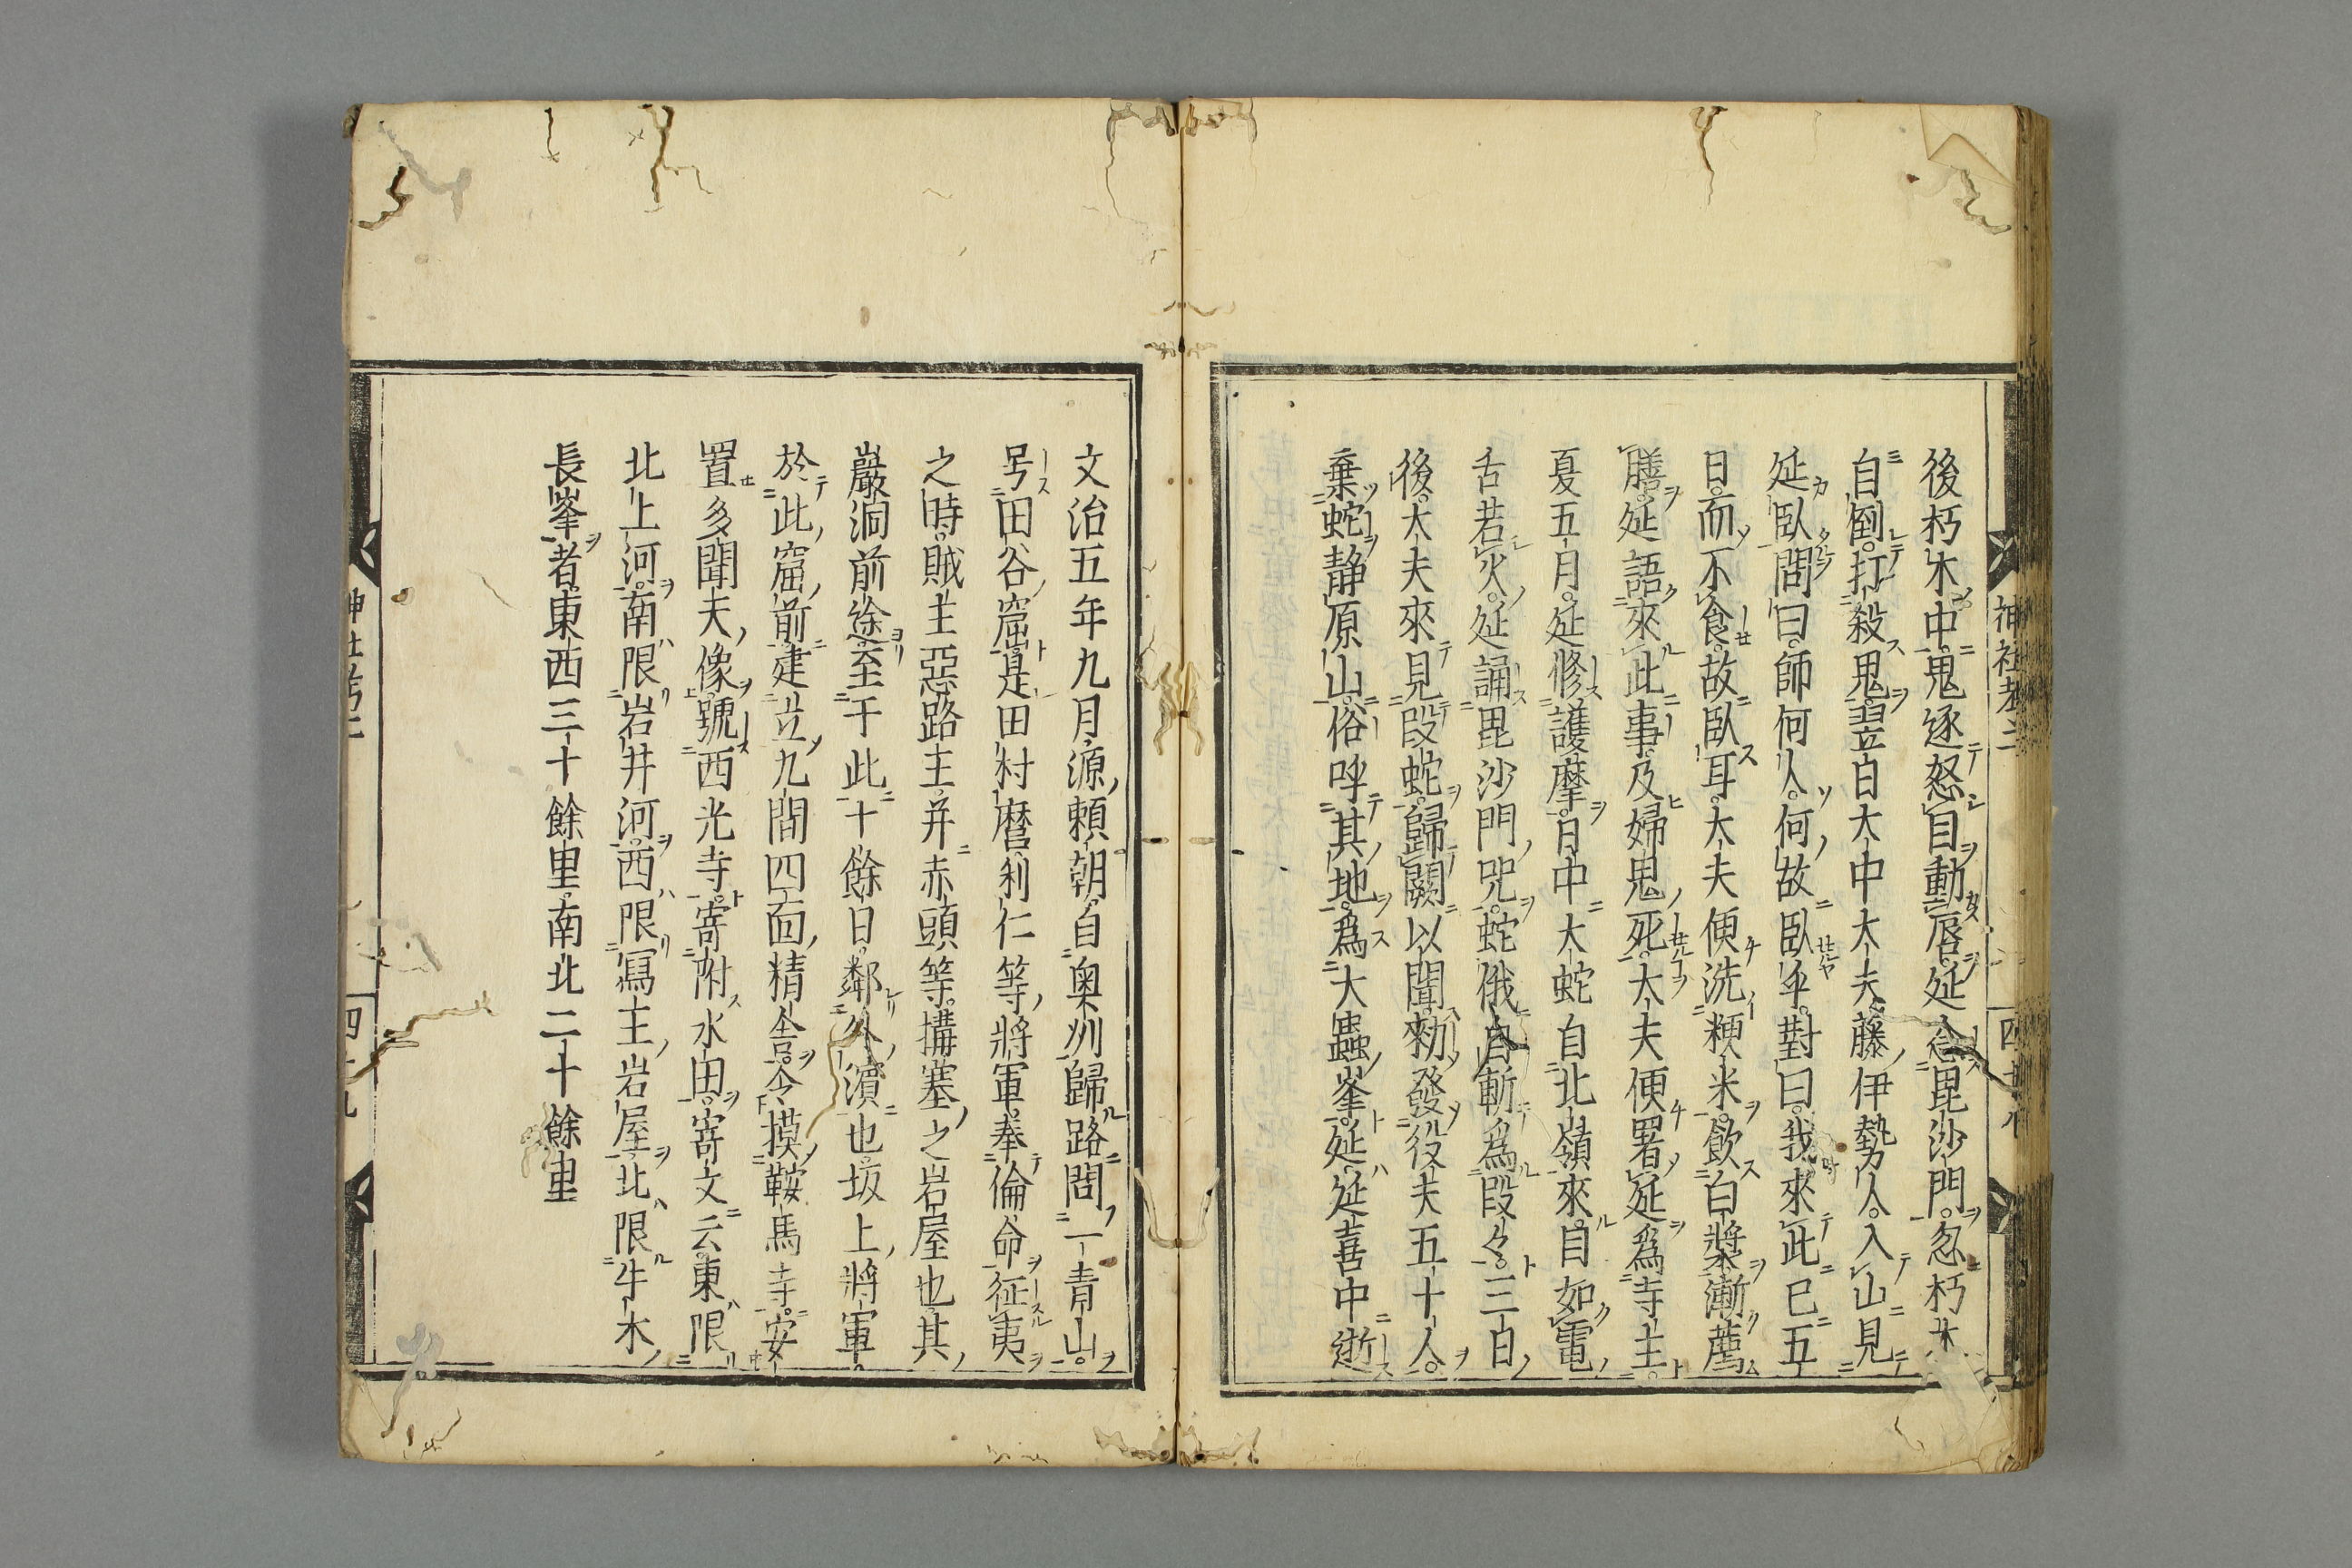 後朽木中鬼逐怒目動唇延念毘沙門忽朽木
自倒打殺鬼翌白大中大夫藤伊勢人入山見
延臥問曰師何人何故臥乎對曰我來此已五
日而不食故臥耳大夫便洗粳米飲白漿漸薦
膳延語來此事及婦鬼死大夫便署延爲寺主
夏五月延修護摩日中大蛇自北嶺來目如電
舌若火延誦毘沙門咒蛇俄自斬爲段々三日
後大夫來見段蛇歸闕以聞勅發役夫五十人
棄蛇静原山俗呼其地爲大蟲峯延延喜中逝
神社考二
文治五年九月源頼朝自奥州歸路問一青山
号田谷窟是田村麿利仁等將軍奉倫命征夷
之時賊主惡路王并赤頭等搆塞之岩屋也其
巖洞前途至于此十餘日鄰外濵也坂上將軍
於此窟前建立九間四面精舎令摸鞍馬寺安
置多聞天像號西光寺寄附水田寄文云東限
北上河南限岩井河西限冩王岩屋北限牛木
長峯者東西三十餘里南北二十餘里
神社考二